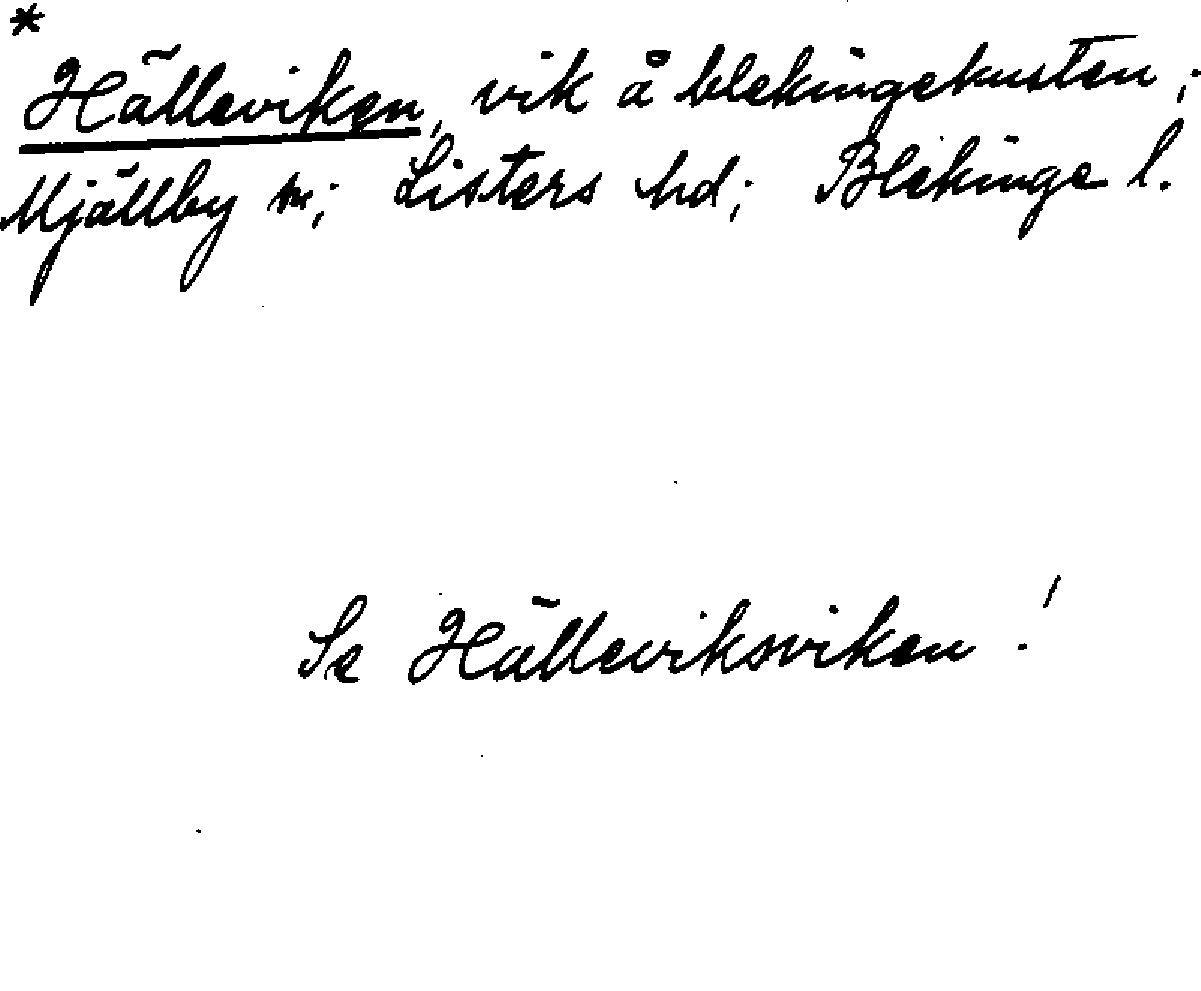 *
Hälleviken, vik å blekingekusten;
Mjällby sn; Listers hd; Blekinge l.
Se Hälleviksviken!